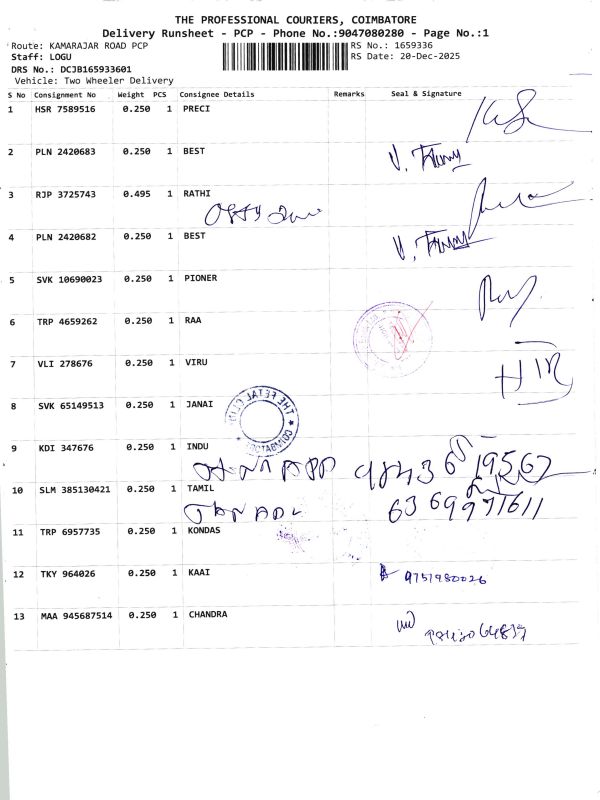 THE PROFESSIONAL COURIERS, COIMBATORE
Delivery Runsheet - PCP - Phone No.:9047080280 - Page No.:1
Route: KAMARAJAR ROAD PCP RS No.: 1659336
Staff: LOGU RS Date: 20-Dec-2025
DRS No.: DCJB165933601
Vehicle: Two Wheeler Delivery
S No Consignment No Weight PCS Consignee Details Remarks Seal & Signature
1 HSR 7589516 0.250 1 PRECI
2 PLN 2420683 0.250 1 BEST
3 RJP 3725743 0.495 1 RATHI
4 PLN 2420682 0.250 1 BEST
5 SVK 10690023 0.250 1 PIONER
6 TRP 4659262 0.250 1 RAA
7 VLI 278676 0.250 1 VIRU
8 SVK 65149513 0.250 1 JANAI
9 KDI 347676 0.250 1 INDU
10 SLM 385130421 0.250 1 TAMIL
11 TRP 6957735 0.250 1 KONDAS
12 TKY 964026 0.250 1 KAAI
9751980026
13 MAA 945687514 0.250 1 CHANDRA